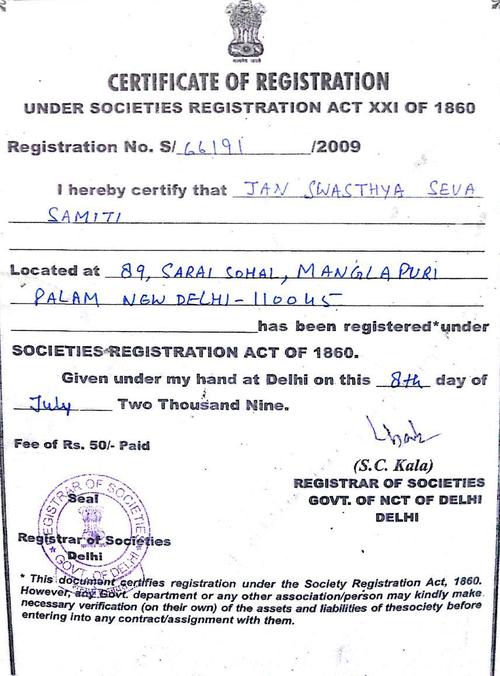 सत्यमेव जयते
CERTIFICATE OF REGISTRATION
UNDER SOCIETIES REGISTRATION ACT XXI OF 1860
Registration No. S/ 66191 /2009
I hereby certify that JAN SWASTHYA SEVA
SAMITI
Located at 89, SARAI SOHAL, MANGLAPURI
PALAM NEW DELHI-110045
has been registered*under
SOCIETIES REGISTRATION ACT OF 1860.
Given under my hand at Delhi on this 8th day of
July Two Thousand Nine.
Fee of Rs. 50/- Paid
(S.C. Kala)
REGISTRAR OF SOCIETIES
GOVT. OF NCT OF DELHI
DELHI
REGISTRAR OF SOCIETIES
GOVT. OF DELHI
Seal
Registrar of Societies
Delhi
* This document certifies registration under the Society Registration Act, 1860.
However, any Govt. department or any other association/person may kindly make
necessary verification (on their own) of the assets and liabilities of thesociety before
entering into any contract/assignment with them.